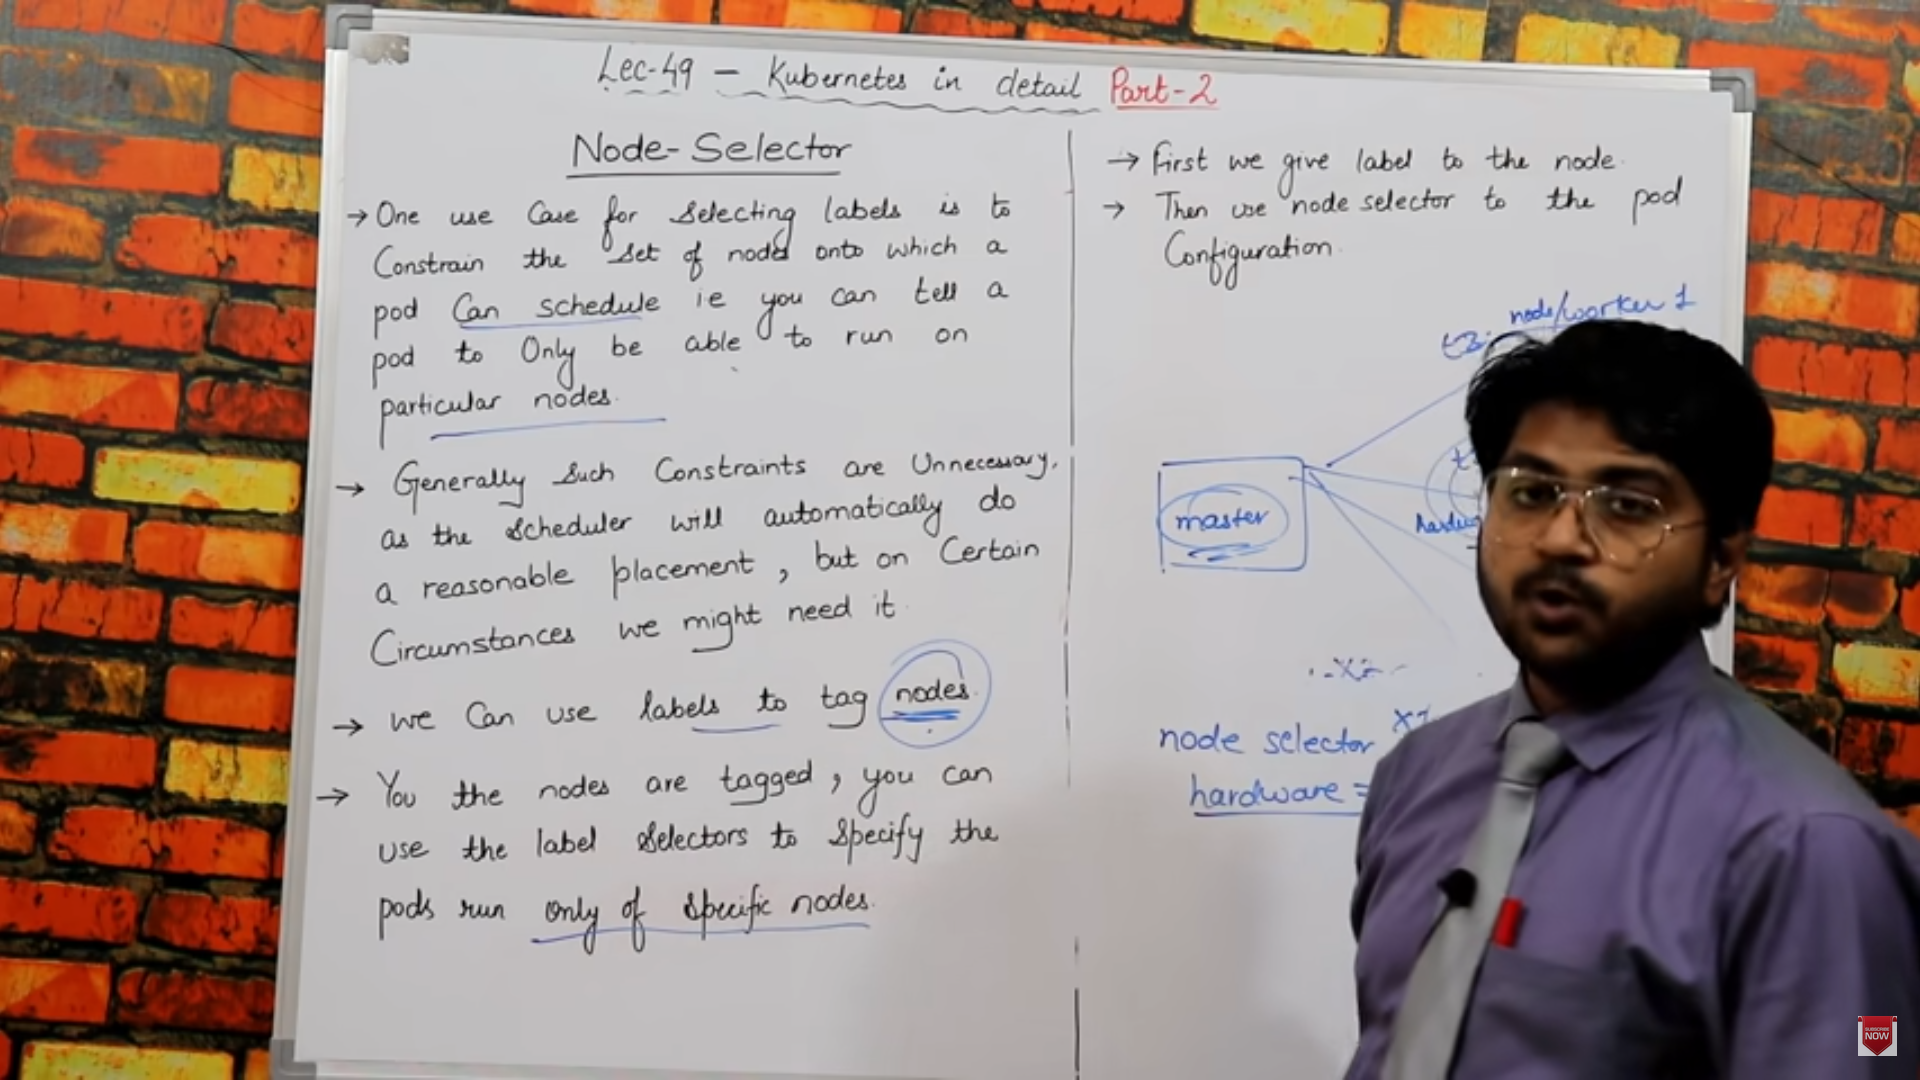 Lec-49 - Kubernetes in detail Part-2
Node-Selector
→ One use Case for Selecting labels is to
Constrain the set of nodes onto which a
pod Can schedule ie you can tell a
pod to Only be able to run on
particular nodes.
→ Generally Such Constraints are Unnecessary,
as the Scheduler will automatically do
a reasonable placement, but on Certain
Circumstances we might need it.
→ we Can use labels to tag nodes.
→ You the nodes are tagged, you can
use the label Selectors to Specify the
pods run only of Specific nodes.
→ First we give label to the node.
→ Then use node selector to the pod
Configuration.
node/worker 1
master
node selector
hardware =
SUBSCRIBE
NOW